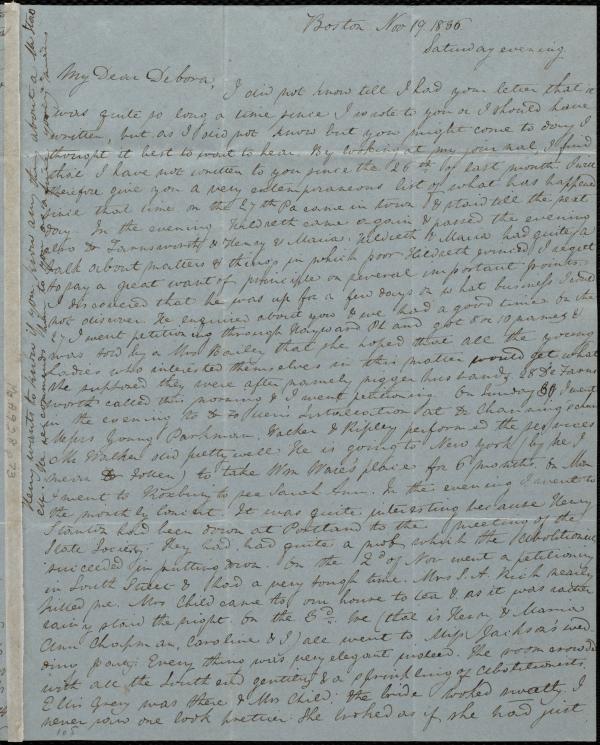 Boston Nov 19. 1836.
Saturday evening
My Dear Debora,
I did not know till I had your letter that it
was quite so long a time since I wrote to you or I should have
written, but as I did not know but you might come to day I
thought it best to wait to hear. By looking at my journal, I find
that I have not written to you since the 26th of last month. I will
therefore give you a very extemporaneous list of what has happened
since that time on the 27th Pa came in town & staid till the next
day. In the evening Hildreth came again & passed the evening
also Dr Farnsworth & Henry & Maria. Hildreth & Maria had quite a
talk about matters & things in which poor Hildreth I regret
to say a great want of principle on several important points.
I discovered that he was up for a few days on what business I could
not discover. He enquired about you & we had a good time. On the
27 I went petitioning through Hayward Pl and got 8 or 10 names &
was told by a Mrs Bailey that she hoped that all the young
Ladies who interested themselves in this matter would get what
she supposed they were after namely nigger husbands. 28 Dr Farns
worth called this morning & I went petitioning. On Sunday 30, I went
in the evening to Follen's Installation at Dr Channing's church
Messrs Young Parkman, Walker & Ripley performed the services
Mr Walker did pretty well. He is going to New York (by he I
mean Dr Follen) to take Wm Ware's place for 6 months. On Mon
I went to Roxbury to see Sarah Ann. In the evening I went to
the monthly concert. It was quite interesting because Henry
Stanton had been down at Portland to the meeting of the
State Society. They had had quite a mob which the Abolitionists
succeeded in putting down. On the 2d of Nov went a petitioning
in South Street & I had a very tough time. Mrs S. A. Rich nearly
killed me. Mrs Child came to our house to tea & as it was rather
rainy staid the night. On the 3d. We (that is Henry & Maria
Ann Chapman, Caroline & I) all went to Miss Jackson's wed
ding party. Every thing was very elegant indeed. The room crowded
with all the South end gentility & a sprinkling of Abolitionists.
Ellis Grey was there & Mrs Child. The bride looked sweetly. I
never saw one look prettier. She looked as if she had just
Henry wants to know if you know any thing about a Mr